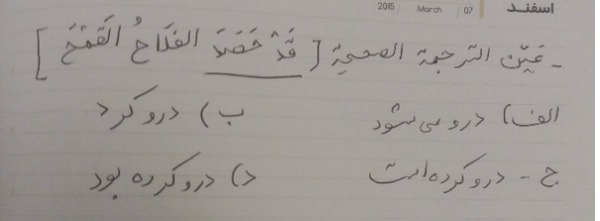 اسفند 07 March 2015
ـ عَيِّن الترجمة الصحيحة [قَدْ حَصَدَ الفلّاحُ القَمْحَ]
الف) درو می‌شود ب) درو کرد
ج - درو کرده است د) درو کرده بود